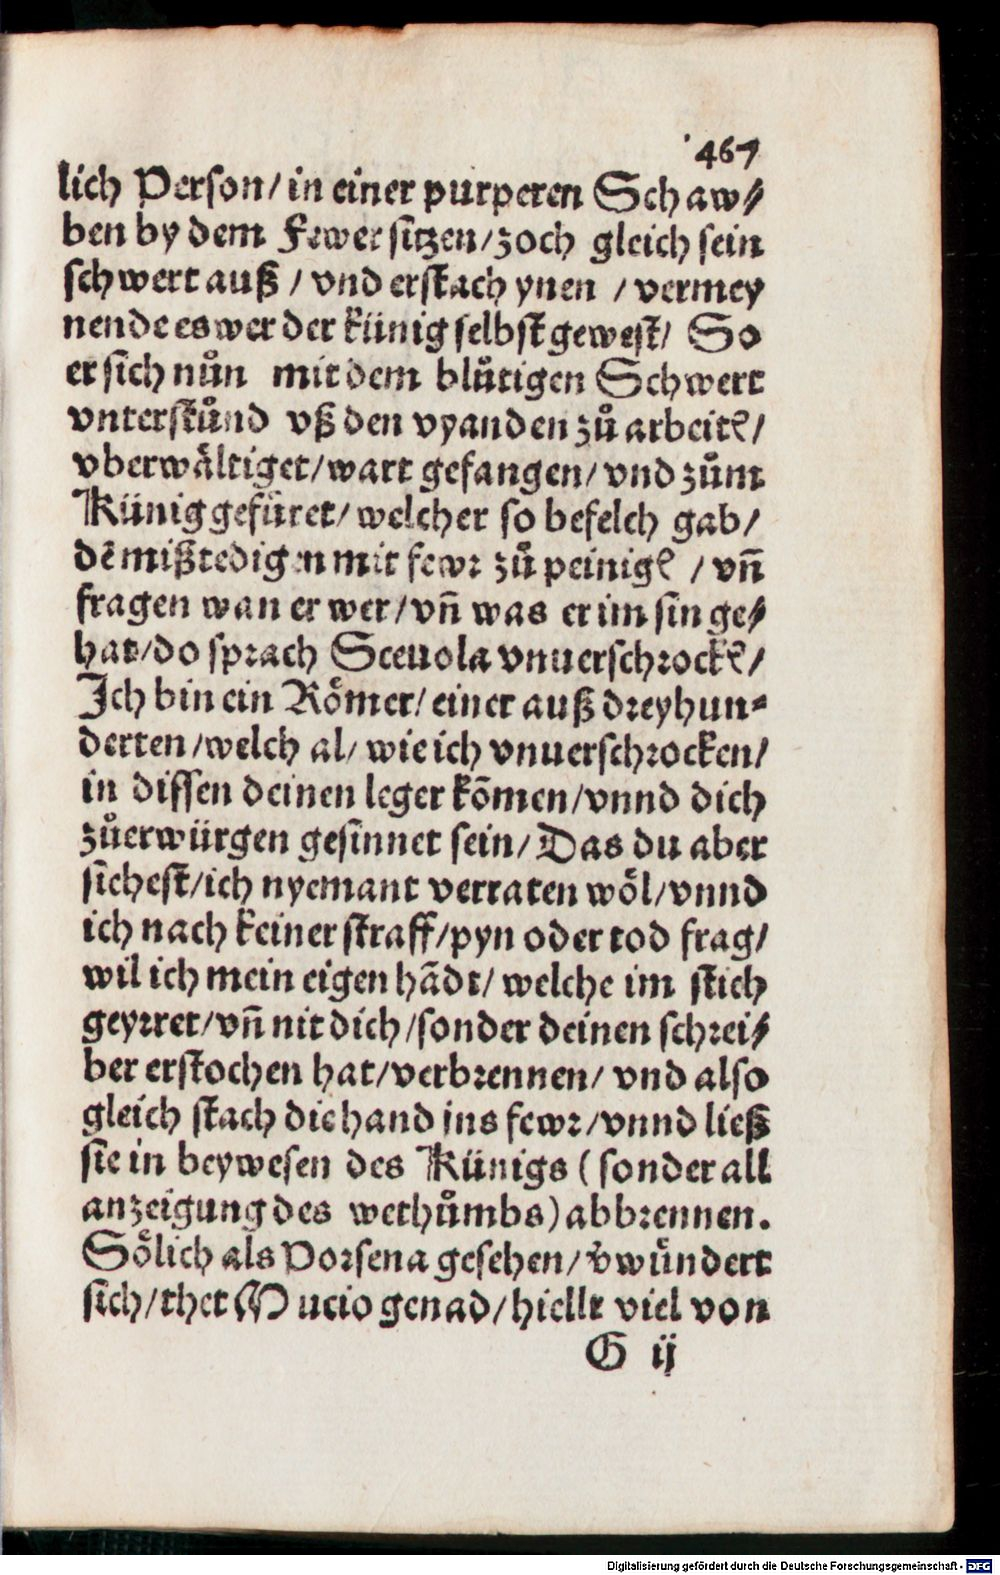 467
lich Person/ in einer purperen Schaw/
ben by dem Fewer sitzen/ zoch gleich sein
schwert auß / vnd erstach ynen / vermey
nende es wer der künig selbst gewest/ So
er sich nůn mit dem blůtigen Schwert
vnterstůnd vß den vyanden zů arbeitē/
vberwältiget/ wart gefangen/ vnd zům
Künig gefüret/ welcher so befelch gab/
dē mißtedigen mit fewr zů peinigē / vñ
fragen wan er wer/ vñ was er im sin ge/
hat/ do sprach Sceuola vnuerschrockē/
Ich bin ein Römer/ einer auß dreyhun-
derten/ welch al/ wie ich vnuerschrocken/
in dissen deinen leger kōmen/ vnnd dich
zůerwürgen gesinnet sein/ Das du aber
sichest/ ich nyemant verraten wöl/ vnnd
ich nach keiner straff/ pyn oder tod frag/
wil ich mein eigen hādt/ welche im stich
geyrret/ vñ nit dich/ sonder deinen schrei/
ber erstochen hat/ verbrennen/ vnd also
gleich stach die hand ins fewr/ vnnd ließ
sie in beywesen des Künigs (sonder all
anzeigung des wethůmbs) abbrennen.
Sölich als Porsena gesehen/ v̄wündert
sich/ thet Mucio genad/ hiellt viel von
G ij
Digitalisierung gefördert durch die Deutsche Forschungsgemeinschaft - DFG